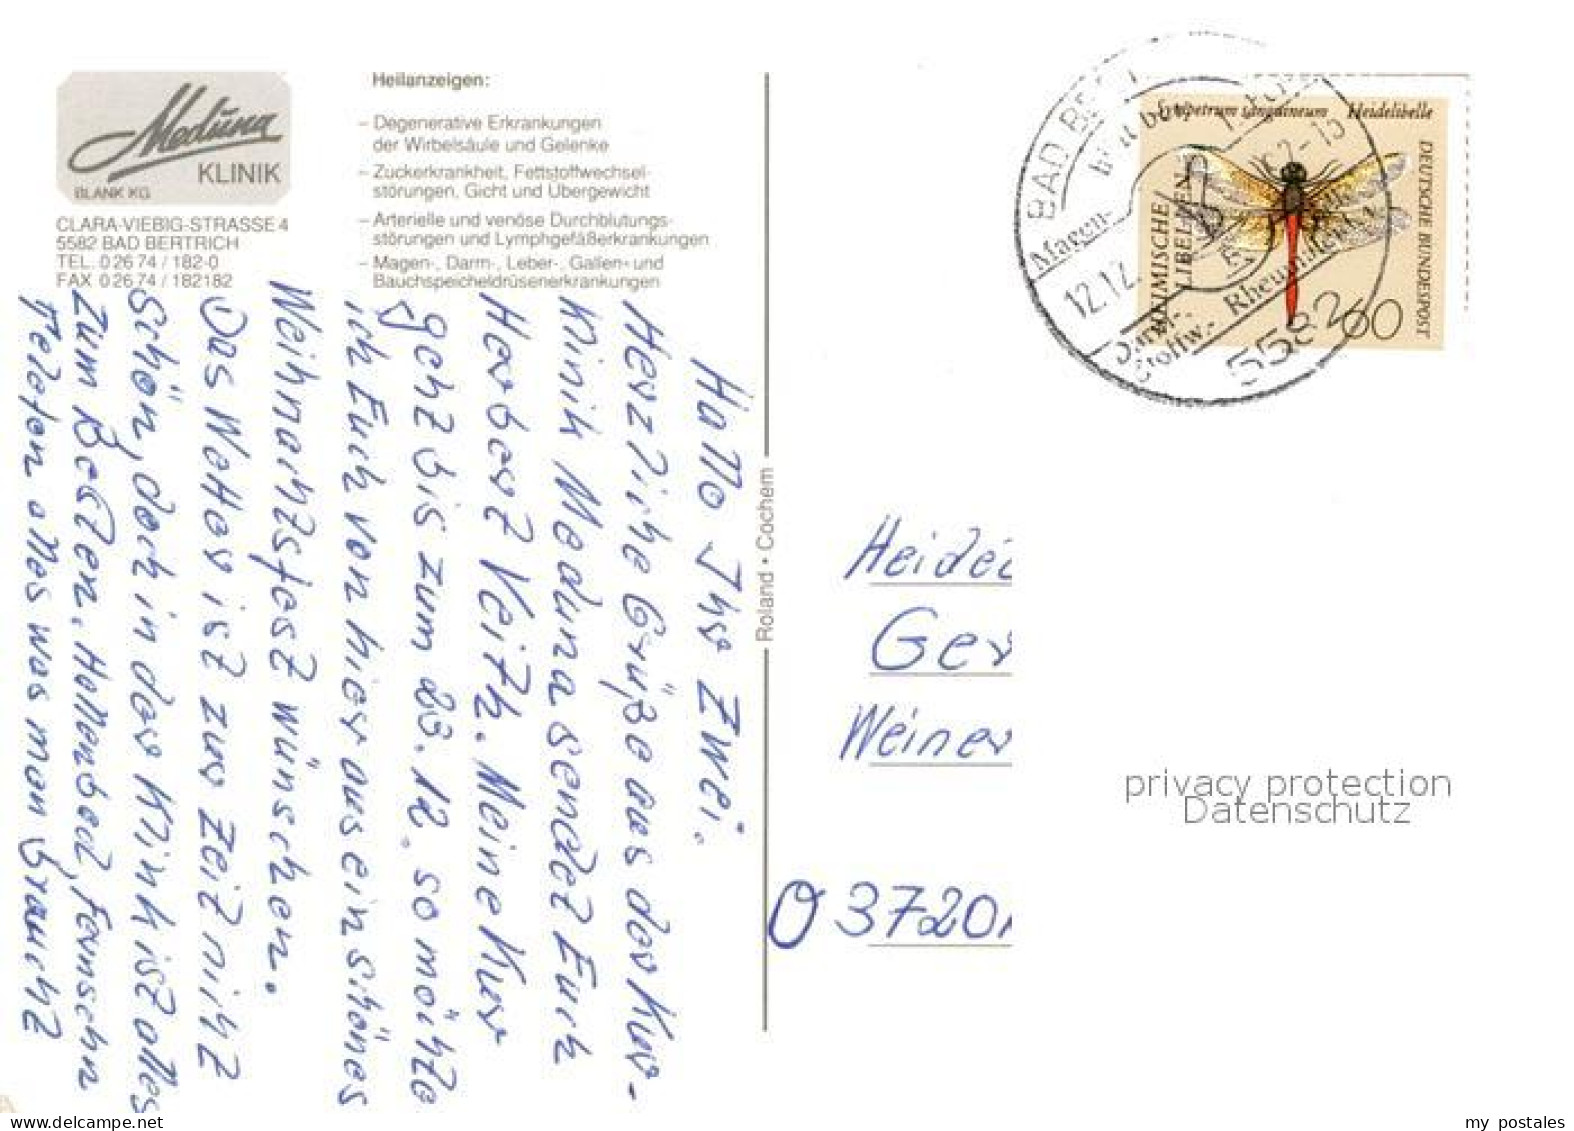 Meduna
KLINIK
BLANK KG
CLARA-VIEBIG-STRASSE 4
5582 BAD BERTRICH
TEL. 0 26 74 / 182-0
FAX 0 26 74 / 182182
Heilanzeigen:
– Degenerative Erkrankungen
der Wirbelsäule und Gelenke
– Zuckerkrankheit, Fettstoffwechsel-
störungen, Gicht und Übergewicht
– Arterielle und venöse Durchblutungs-
störungen und Lymphgefäßerkrankungen
– Magen-, Darm-, Leber-, Gallen- und
Bauchspeicheldrüsenerkrankungen
Hallo Ihr Zwei.
Herzliche Grüße aus der Kur-
klinik Meduna sendet Euch
Herbert Veith. Meine Kur
geht bis zum 23.12. so möchte
ich Euch von hier aus ein schönes
Weihnachtsfest wünschen.
Das Wetter ist zur Zeit nicht
schön, doch in der Klinik ist alles
zum Besten. Hallenbad, Fernsehn
Telefon alles was man braucht
Roland • Cochem
BAD BE
Magen-
12.12.
Darm-
Stoffw.-
Rheumaleiden
5582
Sympetrum sanguineum Heidelibelle
HEIMISCHE
LIBELLEN
DEUTSCHE BUNDESPOST
60
Ger
Weiner
O 3720
privacy protection
Datenschutz
www.delcampe.net
my_postales